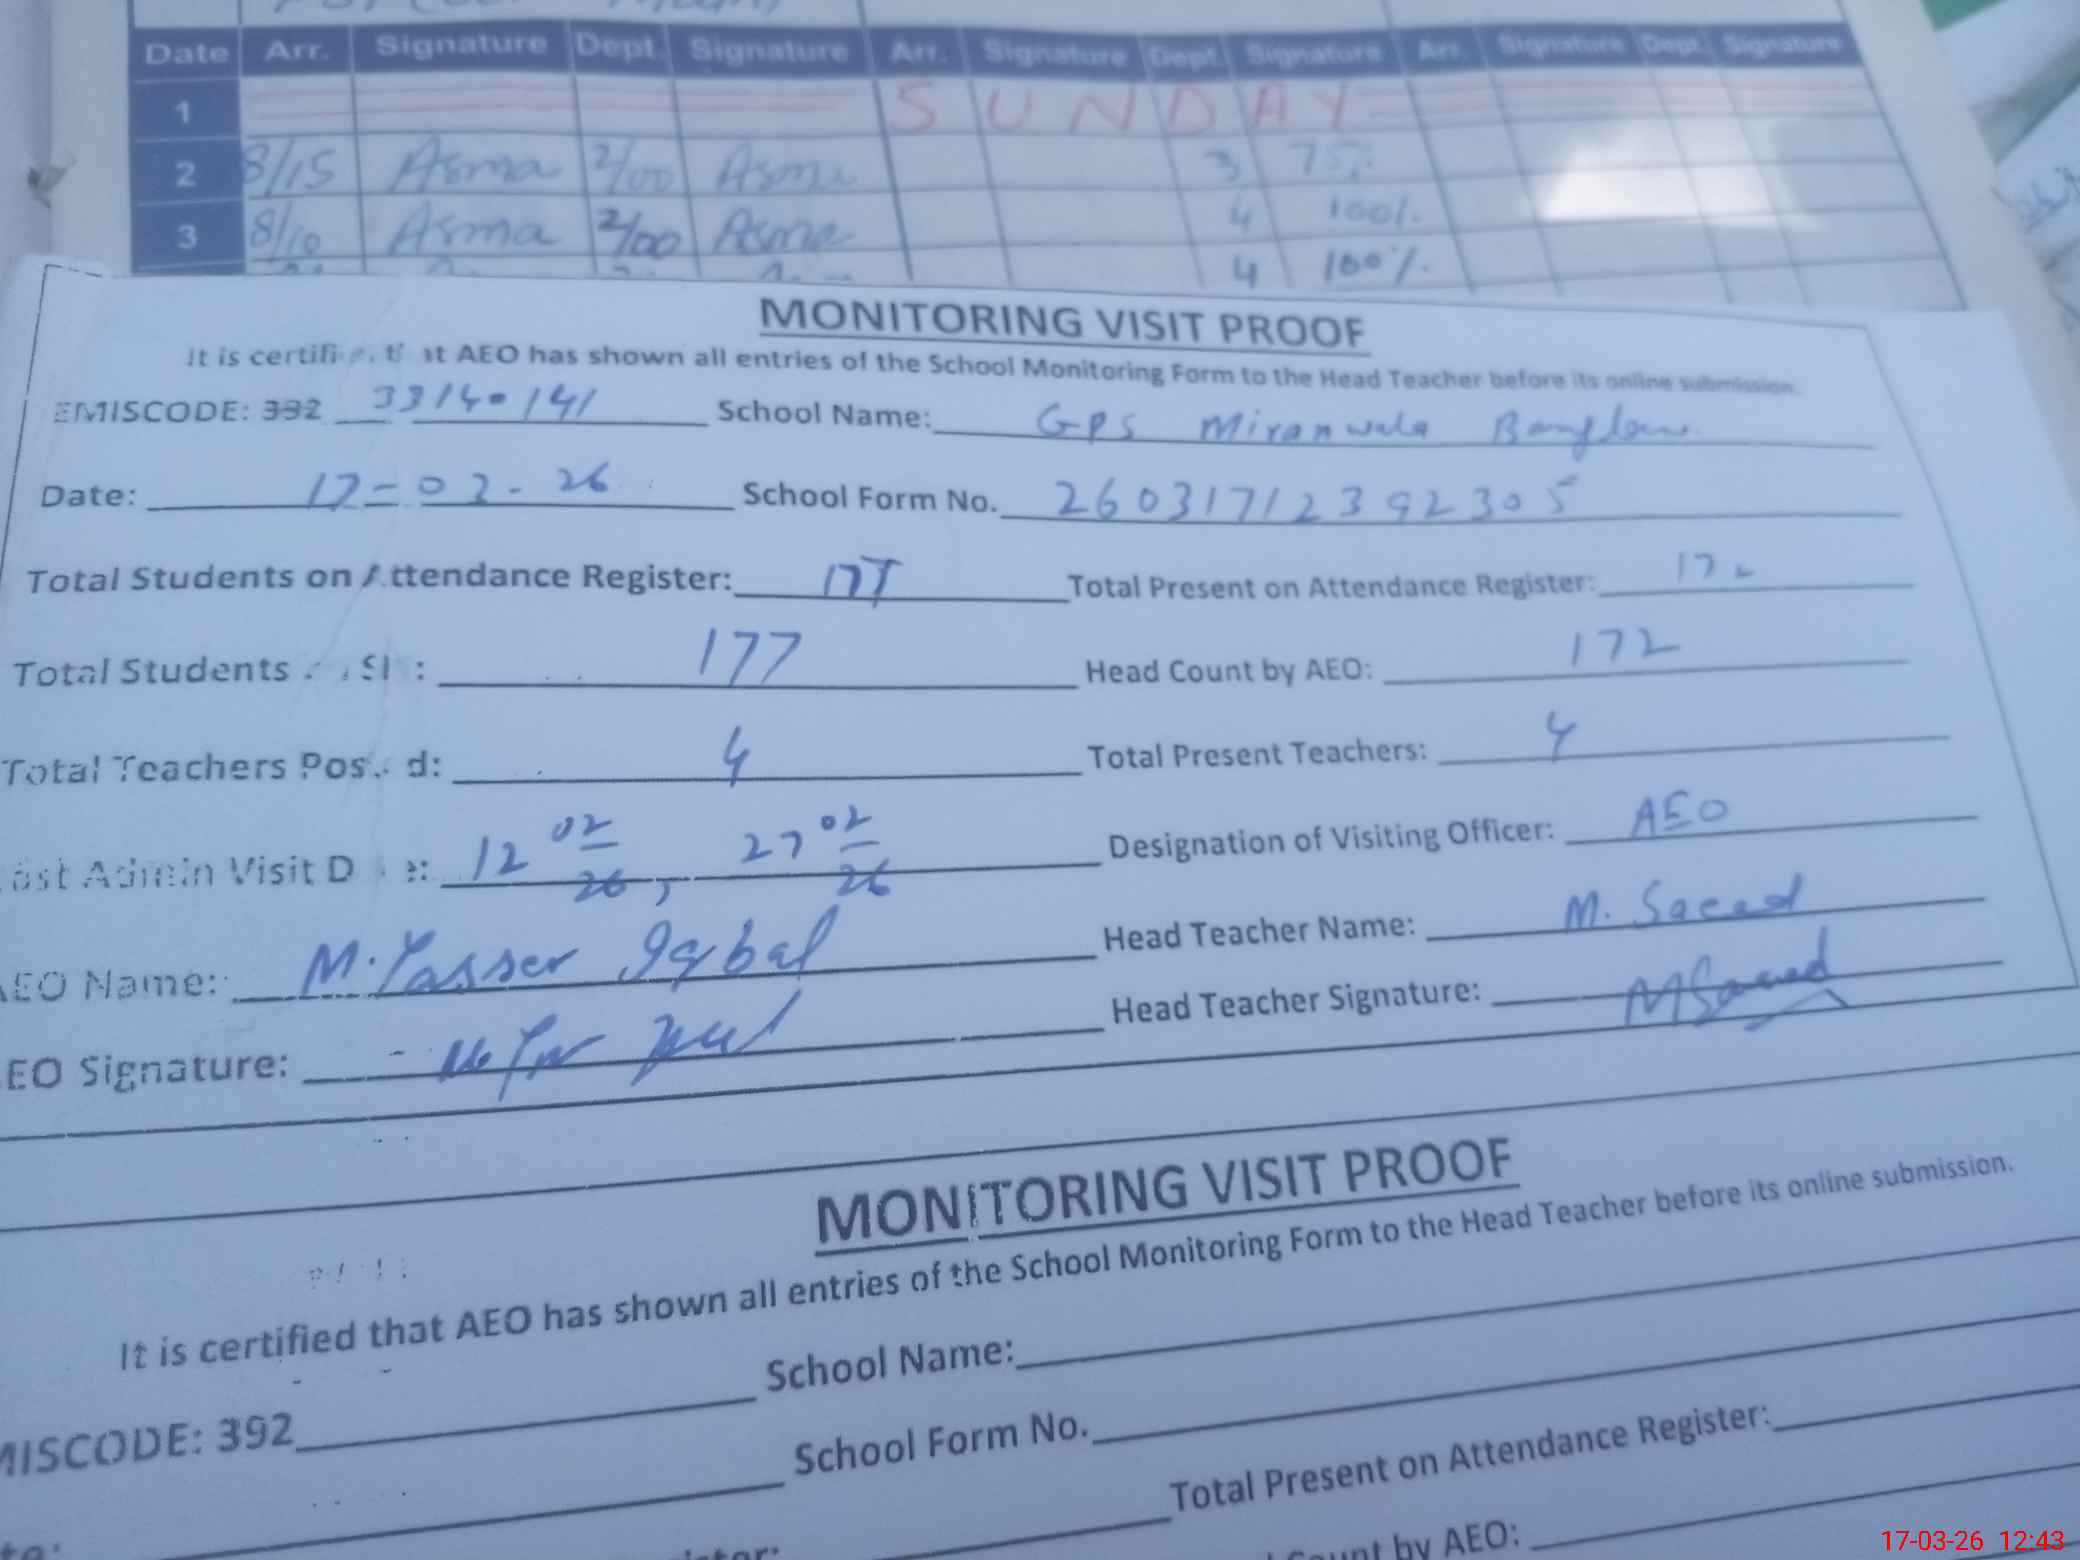 Date Arr. Signature Dept. Signature Arr. Signature Dept. Signature Arr. Signature Dept. Signature
1 SUNDAY
2 8/15 Asma 2/00 Asma 3 75%
3 8/10 Asma 2/00 Asma 4 100%
4 100%
MONITORING VISIT PROOF
It is certified that AEO has shown all entries of the School Monitoring Form to the Head Teacher before its online submission.
EMISCODE: 392 33140141 School Name: GPS Miranwala Banglow
Date: 17-03-26 School Form No. 26031712392305
Total Students on Attendance Register: 177 Total Present on Attendance Register: 172
Total Students SI: 177 Head Count by AEO: 172
Total Teachers Posted: 4 Total Present Teachers: 4
ast Admin Visit Date: 12 02/26, 27 02/26 Designation of Visiting Officer: AEO
AEO Name: M. Yasser Iqbal Head Teacher Name: M. Saeed
EO Signature: Head Teacher Signature: MSaeed
MONITORING VISIT PROOF
It is certified that AEO has shown all entries of the School Monitoring Form to the Head Teacher before its online submission.
MISCODE: 392 School Name:
School Form No.
Total Present on Attendance Register:
Count by AEO:
17-03-26 12:43